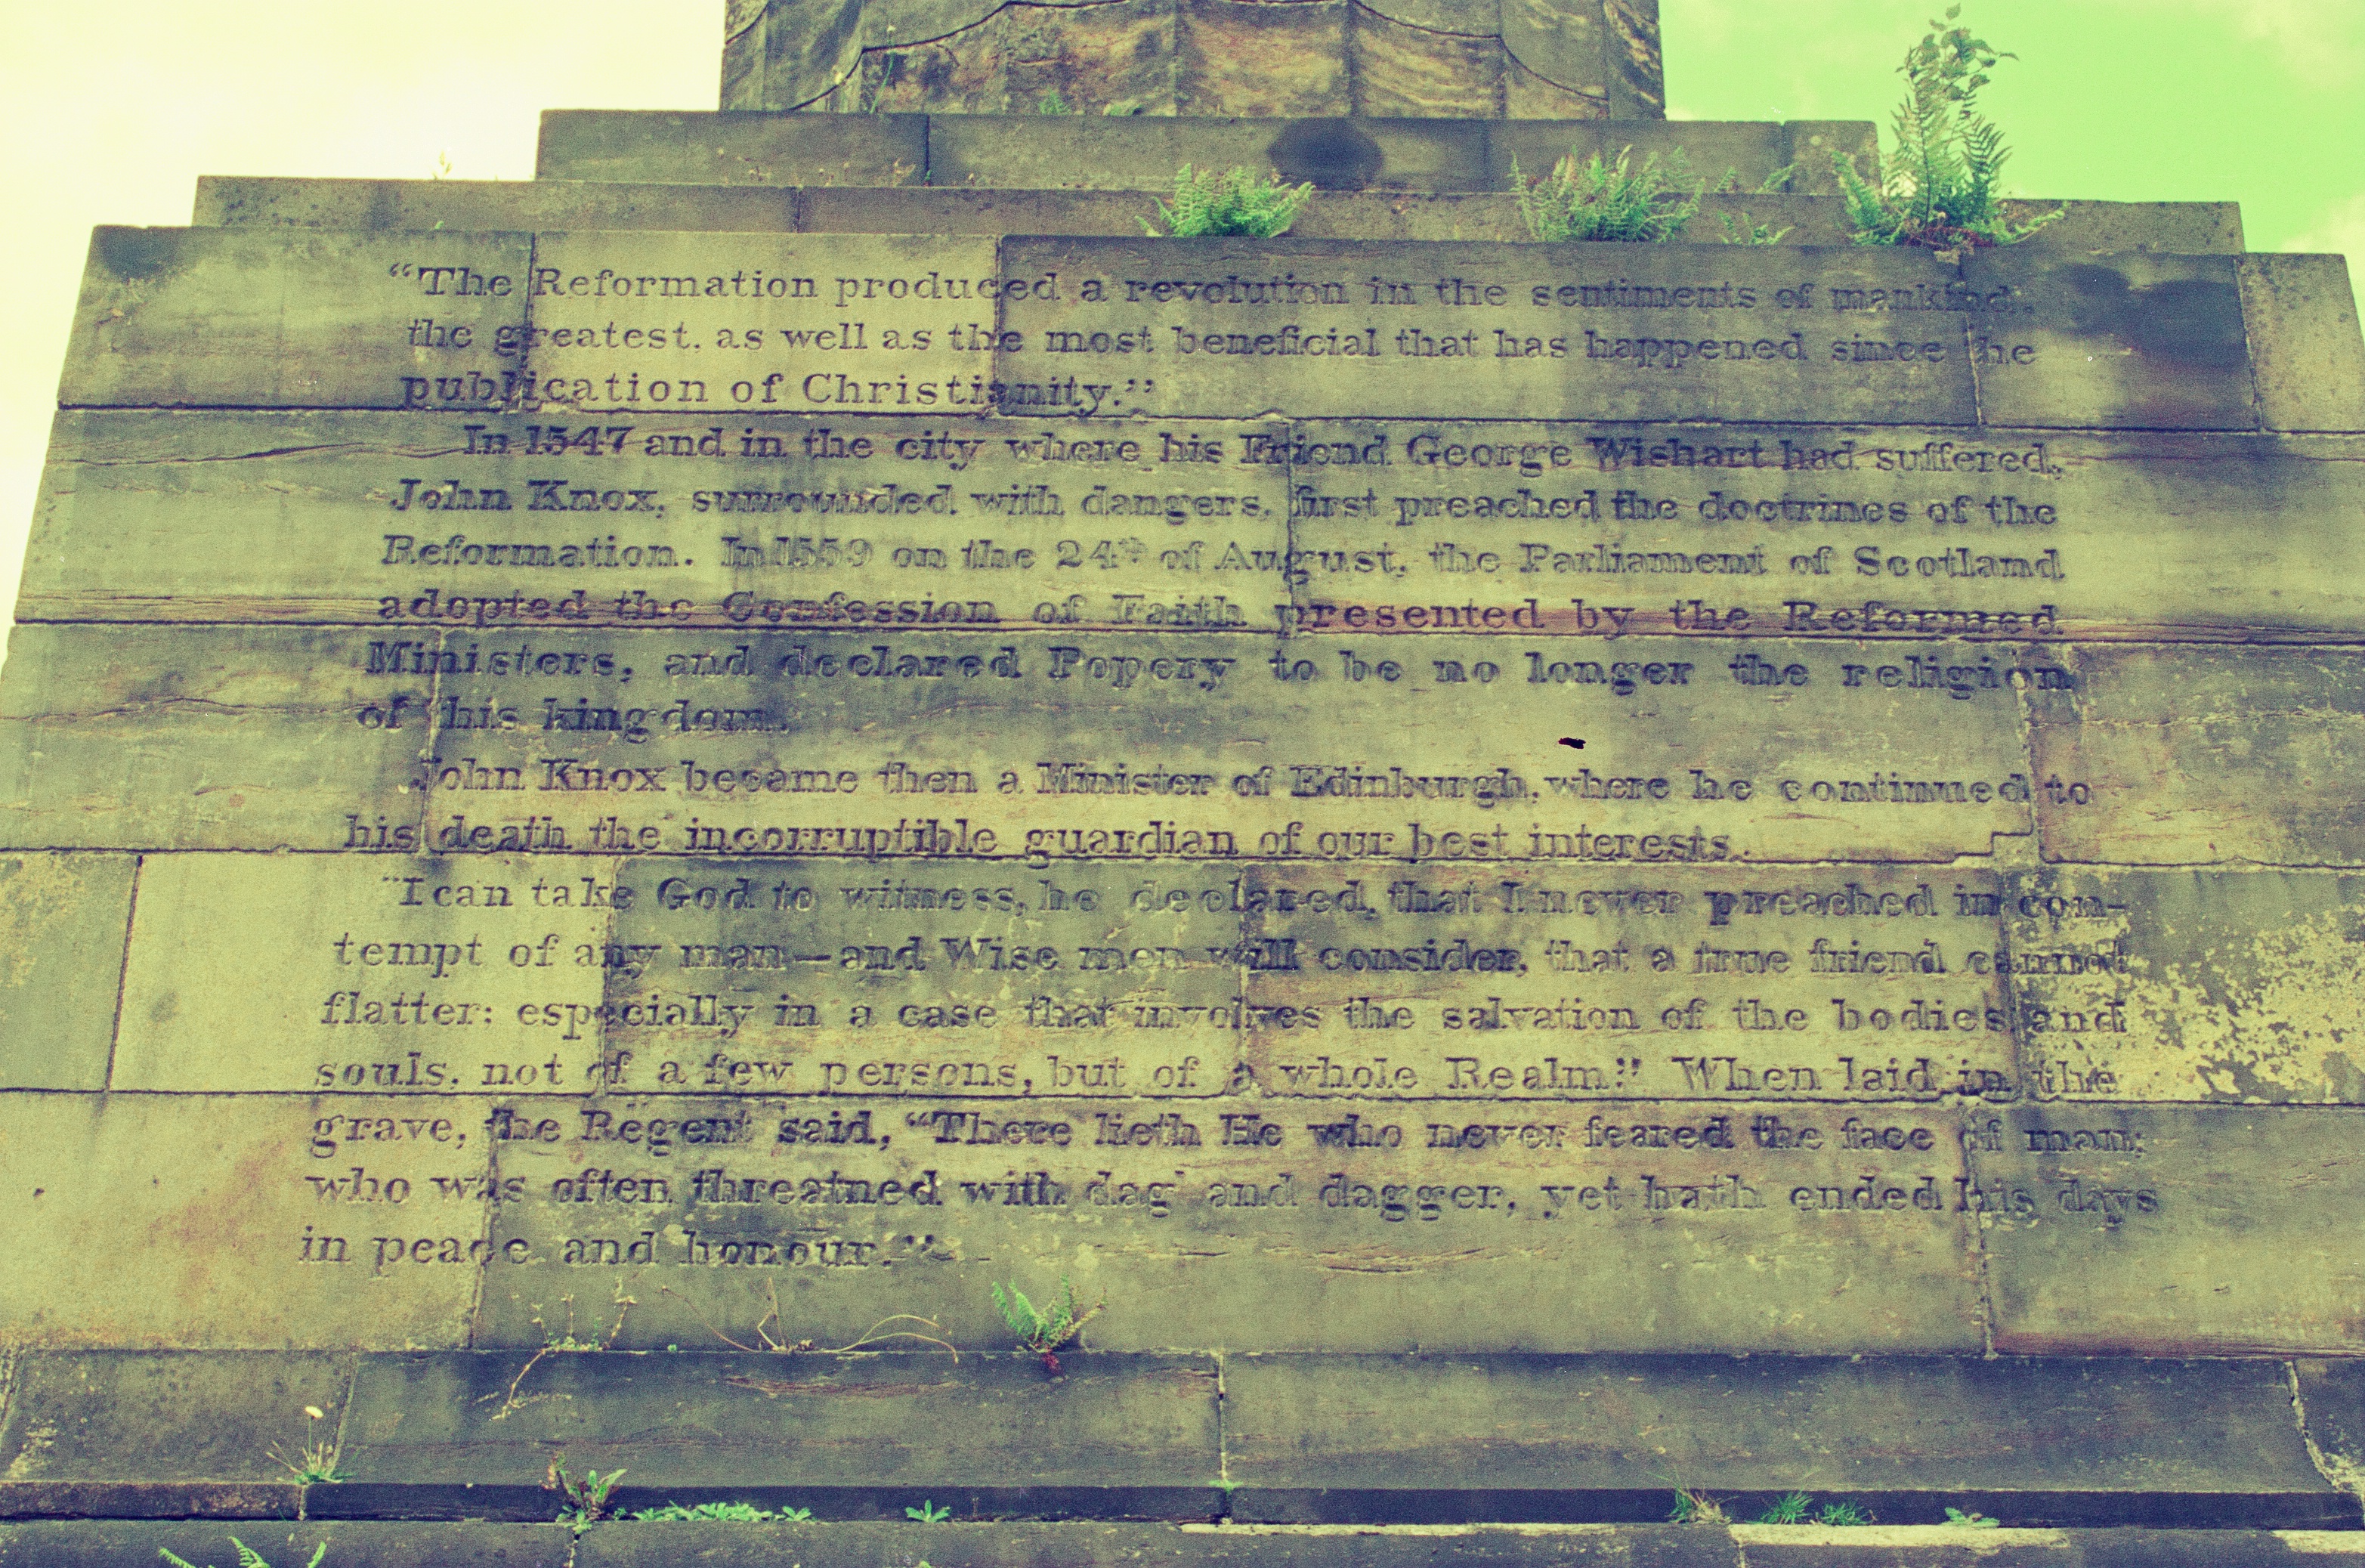 “The Reformation produced a revolution in the sentiments of mankind,
the greatest, as well as the most beneficial that has happened since the
publication of Christianity.”
In 1547 and in the city where his Friend George Wishart had suffered,
John Knox, surrounded with dangers, first preached the doctrines of the
Reformation. In 1559 on the 24th of August, the Parliament of Scotland
adopted the Confession of Faith presented by the Reformed
Ministers, and declared Popery to be no longer the religion
of this kingdom.
John Knox became then a Minister of Edinburgh, where he continued to
his death the incorruptible guardian of our best interests.
“I can take God to witness, he declared, that I never preached in con-
tempt of any man—and Wise men will consider, that a true friend cannot
flatter: especially in a case that involves the salvation of the bodies and
souls, not of a few persons, but of a whole Realm.” When laid in the
grave, the Regent said, “There lieth He who never feared the face of man;
who was often threatned with dag and dagger, yet hath ended his days
in peace and honour.”